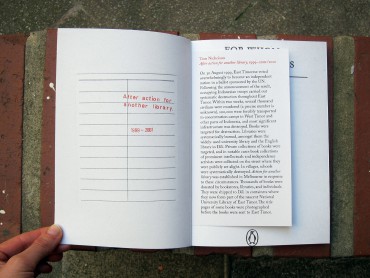 After action for
another library
1999 - 2001
FOR WHOM
S
Tom Nicholson
After action for another library 1999–2001/2002
On 30 August 1999, East Timorese voted
overwhelmingly to become an independent
nation in a ballot sponsored by the UN.
Following the announcement of the result,
retreating Indonesian troops carried out
systematic destruction throughout East
Timor. Within two weeks, several thousand
civilians were murdered (a precise number is
unknown), 200,000 were forcibly transported
to concentration camps in West Timor and
other parts of Indonesia, and most significant
infrastructure was destroyed. Books were
targeted for destruction. Libraries were
systematically burned, amongst these the
widely-used university library and the English
library in Dili. Private collections of books were
targeted, and in notable cases book collections
of prominent intellectuals and independence
activists were collected on the street where they
were publicly set alight. In villages, schools
were systematically destroyed. After action for another
library was established in Melbourne in response
to these circumstances. Thousands of books were
donated by bookstores, libraries, and individuals.
They were shipped to Dili in containers where
they now form part of the nascent National
University Library of East Timor. The title
pages of some books were photographed
before the books were sent to East Timor.